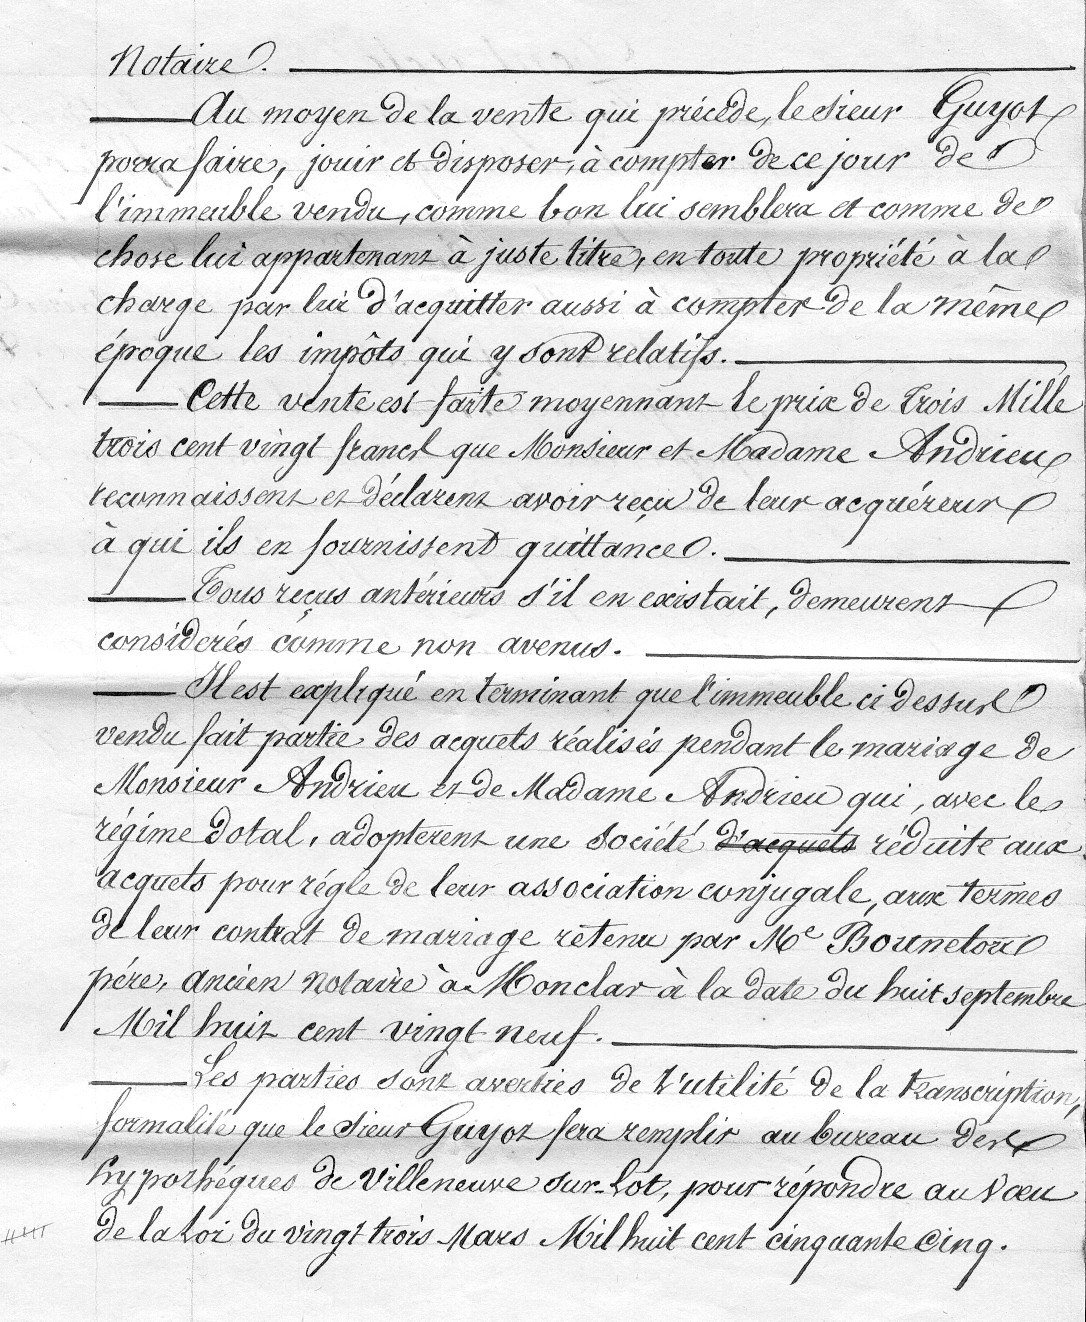 Notaire.
Au moyen de la vente qui précède, le sieur Guyot
porra faire, jouir et disposer, à compter de ce jour de
l'immeuble vendu, comme bon lui semblera et comme de
chose lui appartenant à juste titre, en toute propriété à la
charge par lui d'acquitter aussi à compter de la même
époque les impôts qui y sont relatifs.
Cette vente est faite moyennant le prix de Trois Mille
trois cent vingt francs que Monsieur et Madame Andrieu
reconnaissent et déclarent avoir reçu de leur acquéreur
à qui ils en fournissent quittance.
Tous reçus antérieurs s'il en existait, demeurent
considerés comme non avenus.
Il est expliqué en terminant que l'immeuble ci dessus
vendu fait partie des acquets réalisés pendant le mariage de
Monsieur Andrieu et de Madame Andrieu qui, avec le
régime dotal, adopterent une société d'acquets réduite aux
acquets pour régle de leur association conjugale, aux termes
de leur contrat de mariage retenu par Me Bounetou
pére, ancien notaire à Monclar à la date du huit septembre
Mil huit cent vingt neuf.
Les parties sont averties de l'utilité de la transcription,
formalité que le sieur Guyot fera remplir au bureau des
hypothéques de Villeneuve sur-Lot, pour répondre au vœu
de la Loi du vingt trois Mars Mil huit cent cinquante Cinq.